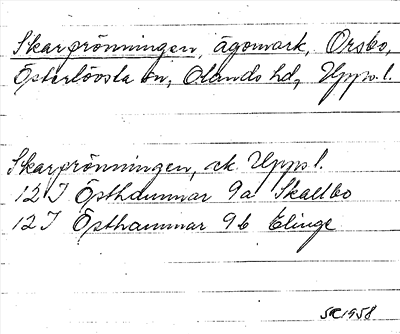 Skarprönningen, ägomark, Orsbo,
Österlövsta sn, Olands hd, Upps. l.
Skarprönningen, ek Upps l.
12 I Östhammar 9a Skaltbo
12 I Östhammar 9b Elinge
SK 1958